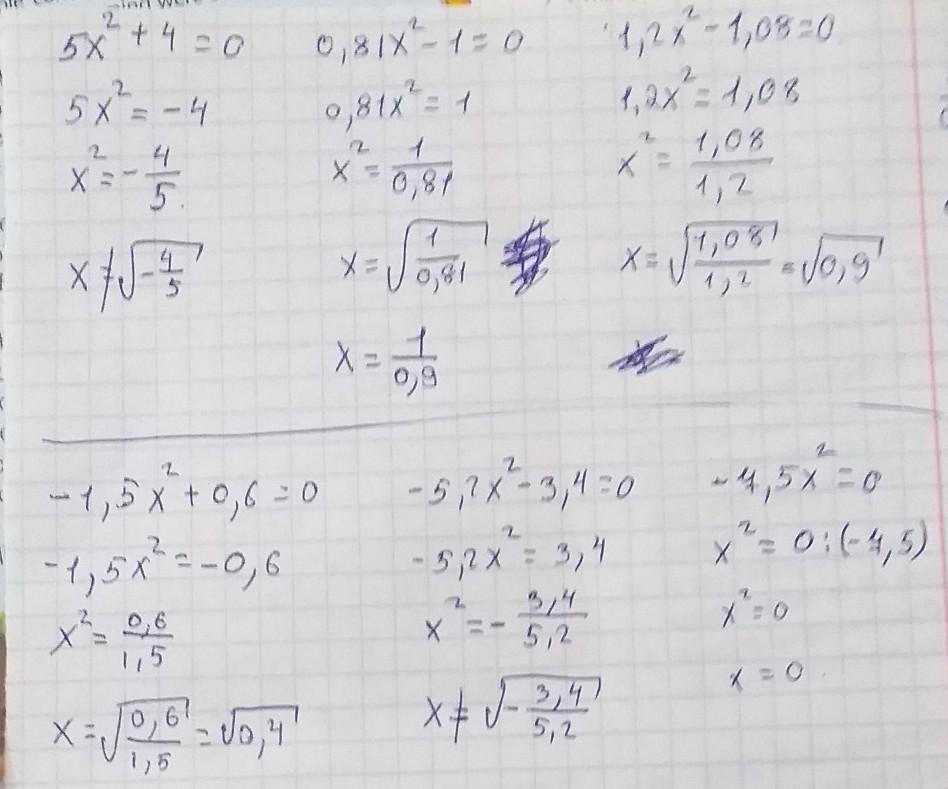 5x² + 4 = 0
5x² = -4
x² = -4/5
x ≠ √(-4/5)
0,81x² - 1 = 0
0,81x² = 1
x² = 1/0,81
x = √(1/0,81)
x = 1/0,9
1,2x² - 1,08 = 0
1,2x² = 1,08
x² = 1,08/1,2
x = √(1,08/1,2) = √0,9
-1,5x² + 0,6 = 0
-1,5x² = -0,6
x² = 0,6/1,5
x = √(0,6/1,5) = √0,4
-5,2x² - 3,4 = 0
-5,2x² = 3,4
x² = -3,4/5,2
x ≠ √(-3,4/5,2)
-4,5x² = 0
x² = 0:(-4,5)
x² = 0
x = 0